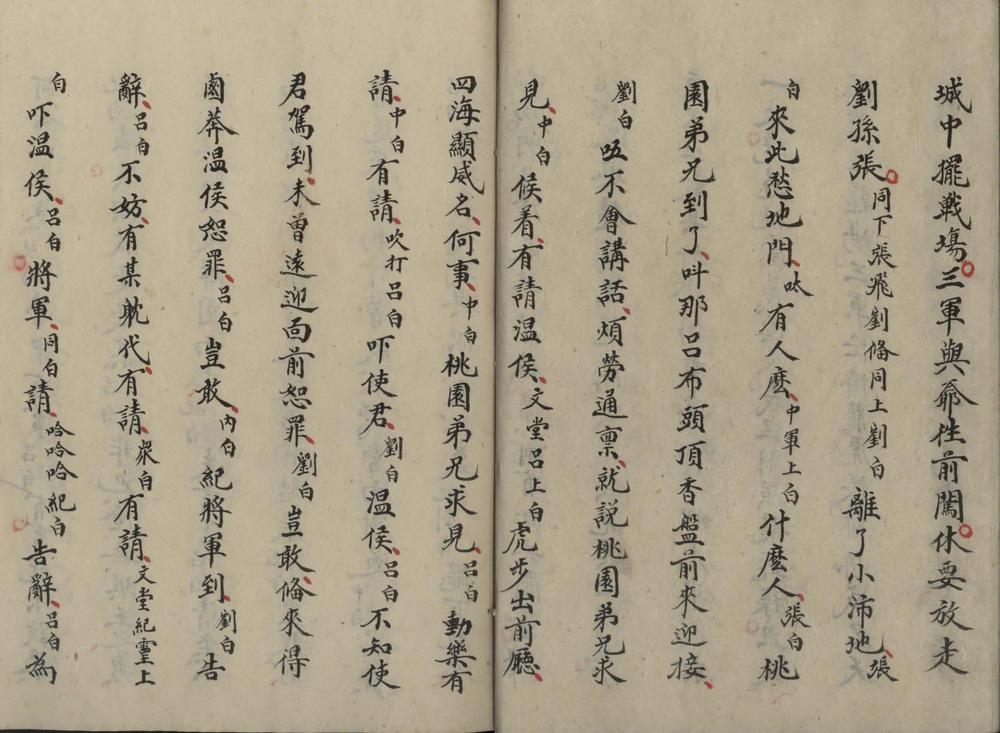 城中擺戰場三軍與爺往前闖休要放走
劉孫張同下張飛劉俻同上劉白離了小沛地張
白來此愁地門呔有人麽中軍上白什麽人張白桃
園弟兄到了呌那呂布頭頂香盤前來迎接
劉白吥不會講話煩勞通禀就説桃園弟兄求
見中白候着有請温侯文堂呂上白虎步出前廳
四海顯威名何事中白桃園弟兄求見呂白動樂有
請中白有請吹打呂白吓使君劉白温侯呂白不知使
君駕到未曾遠迎面前恕罪劉白豈敢俻來得
鹵莽温侯恕罪呂白豈敢內白紀將軍到劉白告
辭呂白不妨有某躭代有請衆白有請文堂紀靈上
白吓温侯呂白將軍同白請哈哈哈紀白告辭呂白為